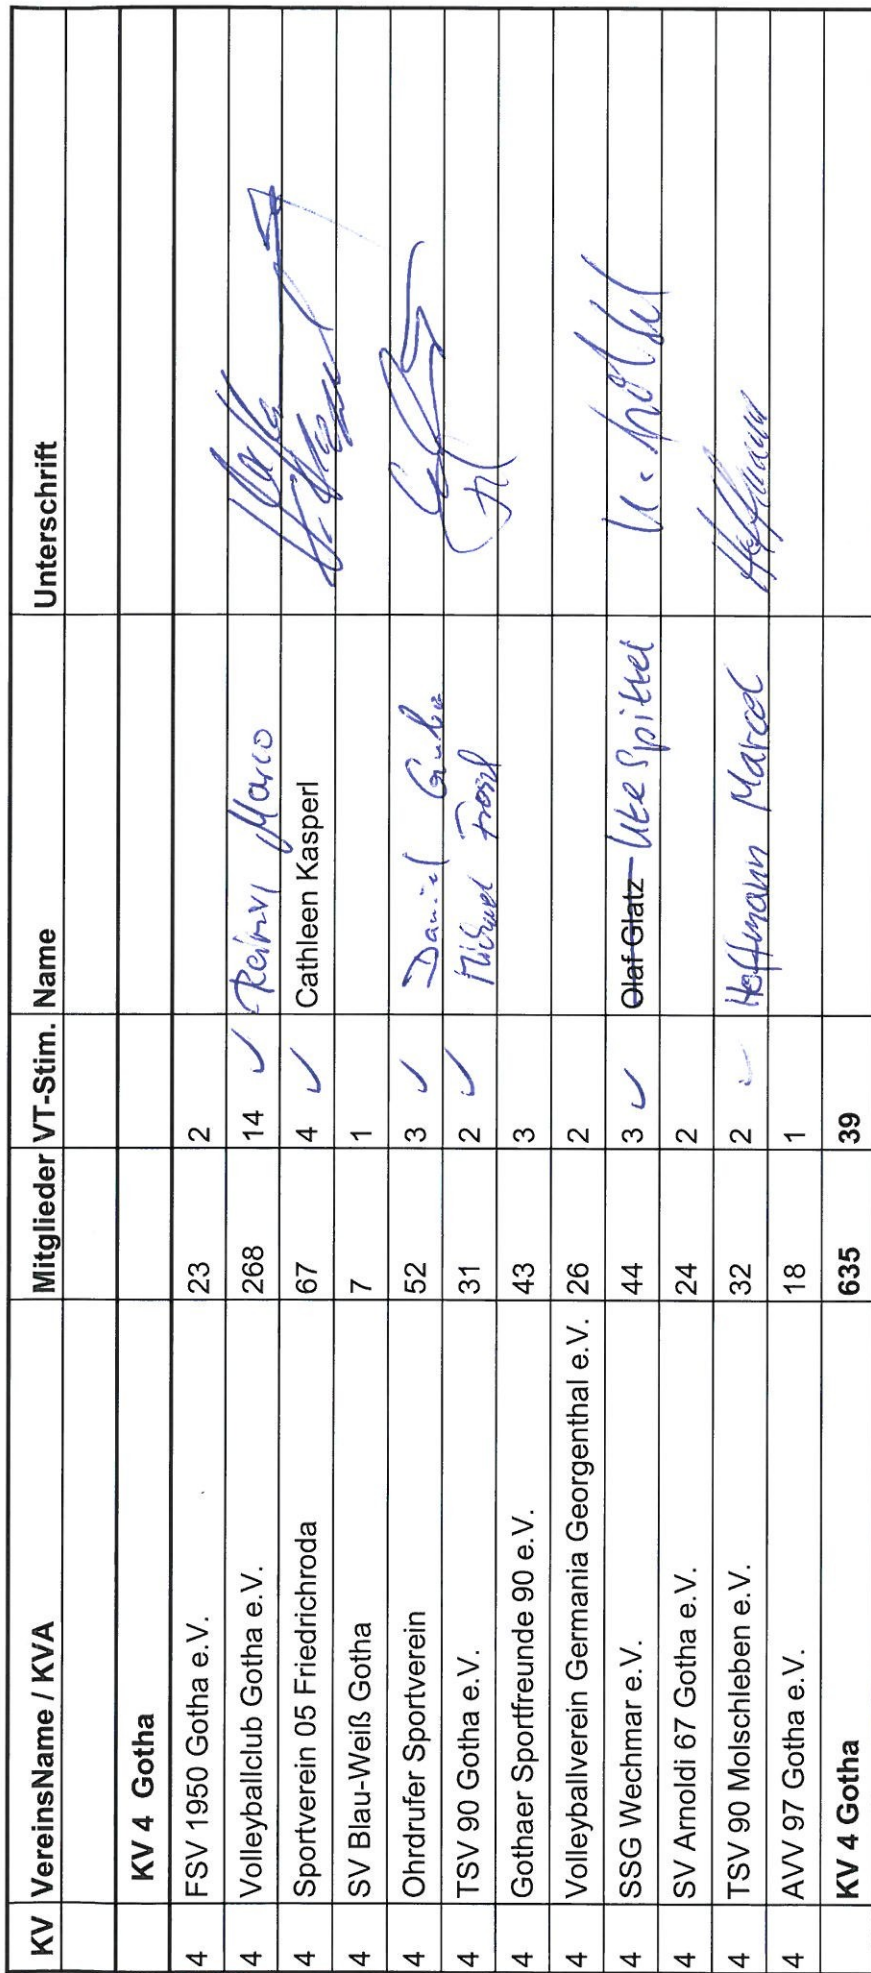 KV VereinsName / KVA Mitglieder VT-Stim. Name Unterschrift
KV 4 Gotha
4 FSV 1950 Gotha e.V. 23 2
4 Volleyballclub Gotha e.V. 268 14 ✓ Marco
4 Sportverein 05 Friedrichroda 67 4 ✓ Cathleen Kasperl
4 SV Blau-Weiß Gotha 7 1
4 Ohrdrufer Sportverein 52 3 ✓ Daniel
4 TSV 90 Gotha e.V. 31 2 ✓ Michael
4 Gothaer Sportfreunde 90 e.V. 43 3
4 Volleyballverein Germania Georgenthal e.V. 26 2
4 SSG Wechmar e.V. 44 3 ✓ Olaf Glatz Ute Spittel
4 SV Arnoldi 67 Gotha e.V. 24 2
4 TSV 90 Molschleben e.V. 32 2 ✓ Hoffmann Marcel Hoffmann
4 AVV 97 Gotha e.V. 18 1
KV 4 Gotha 635 39